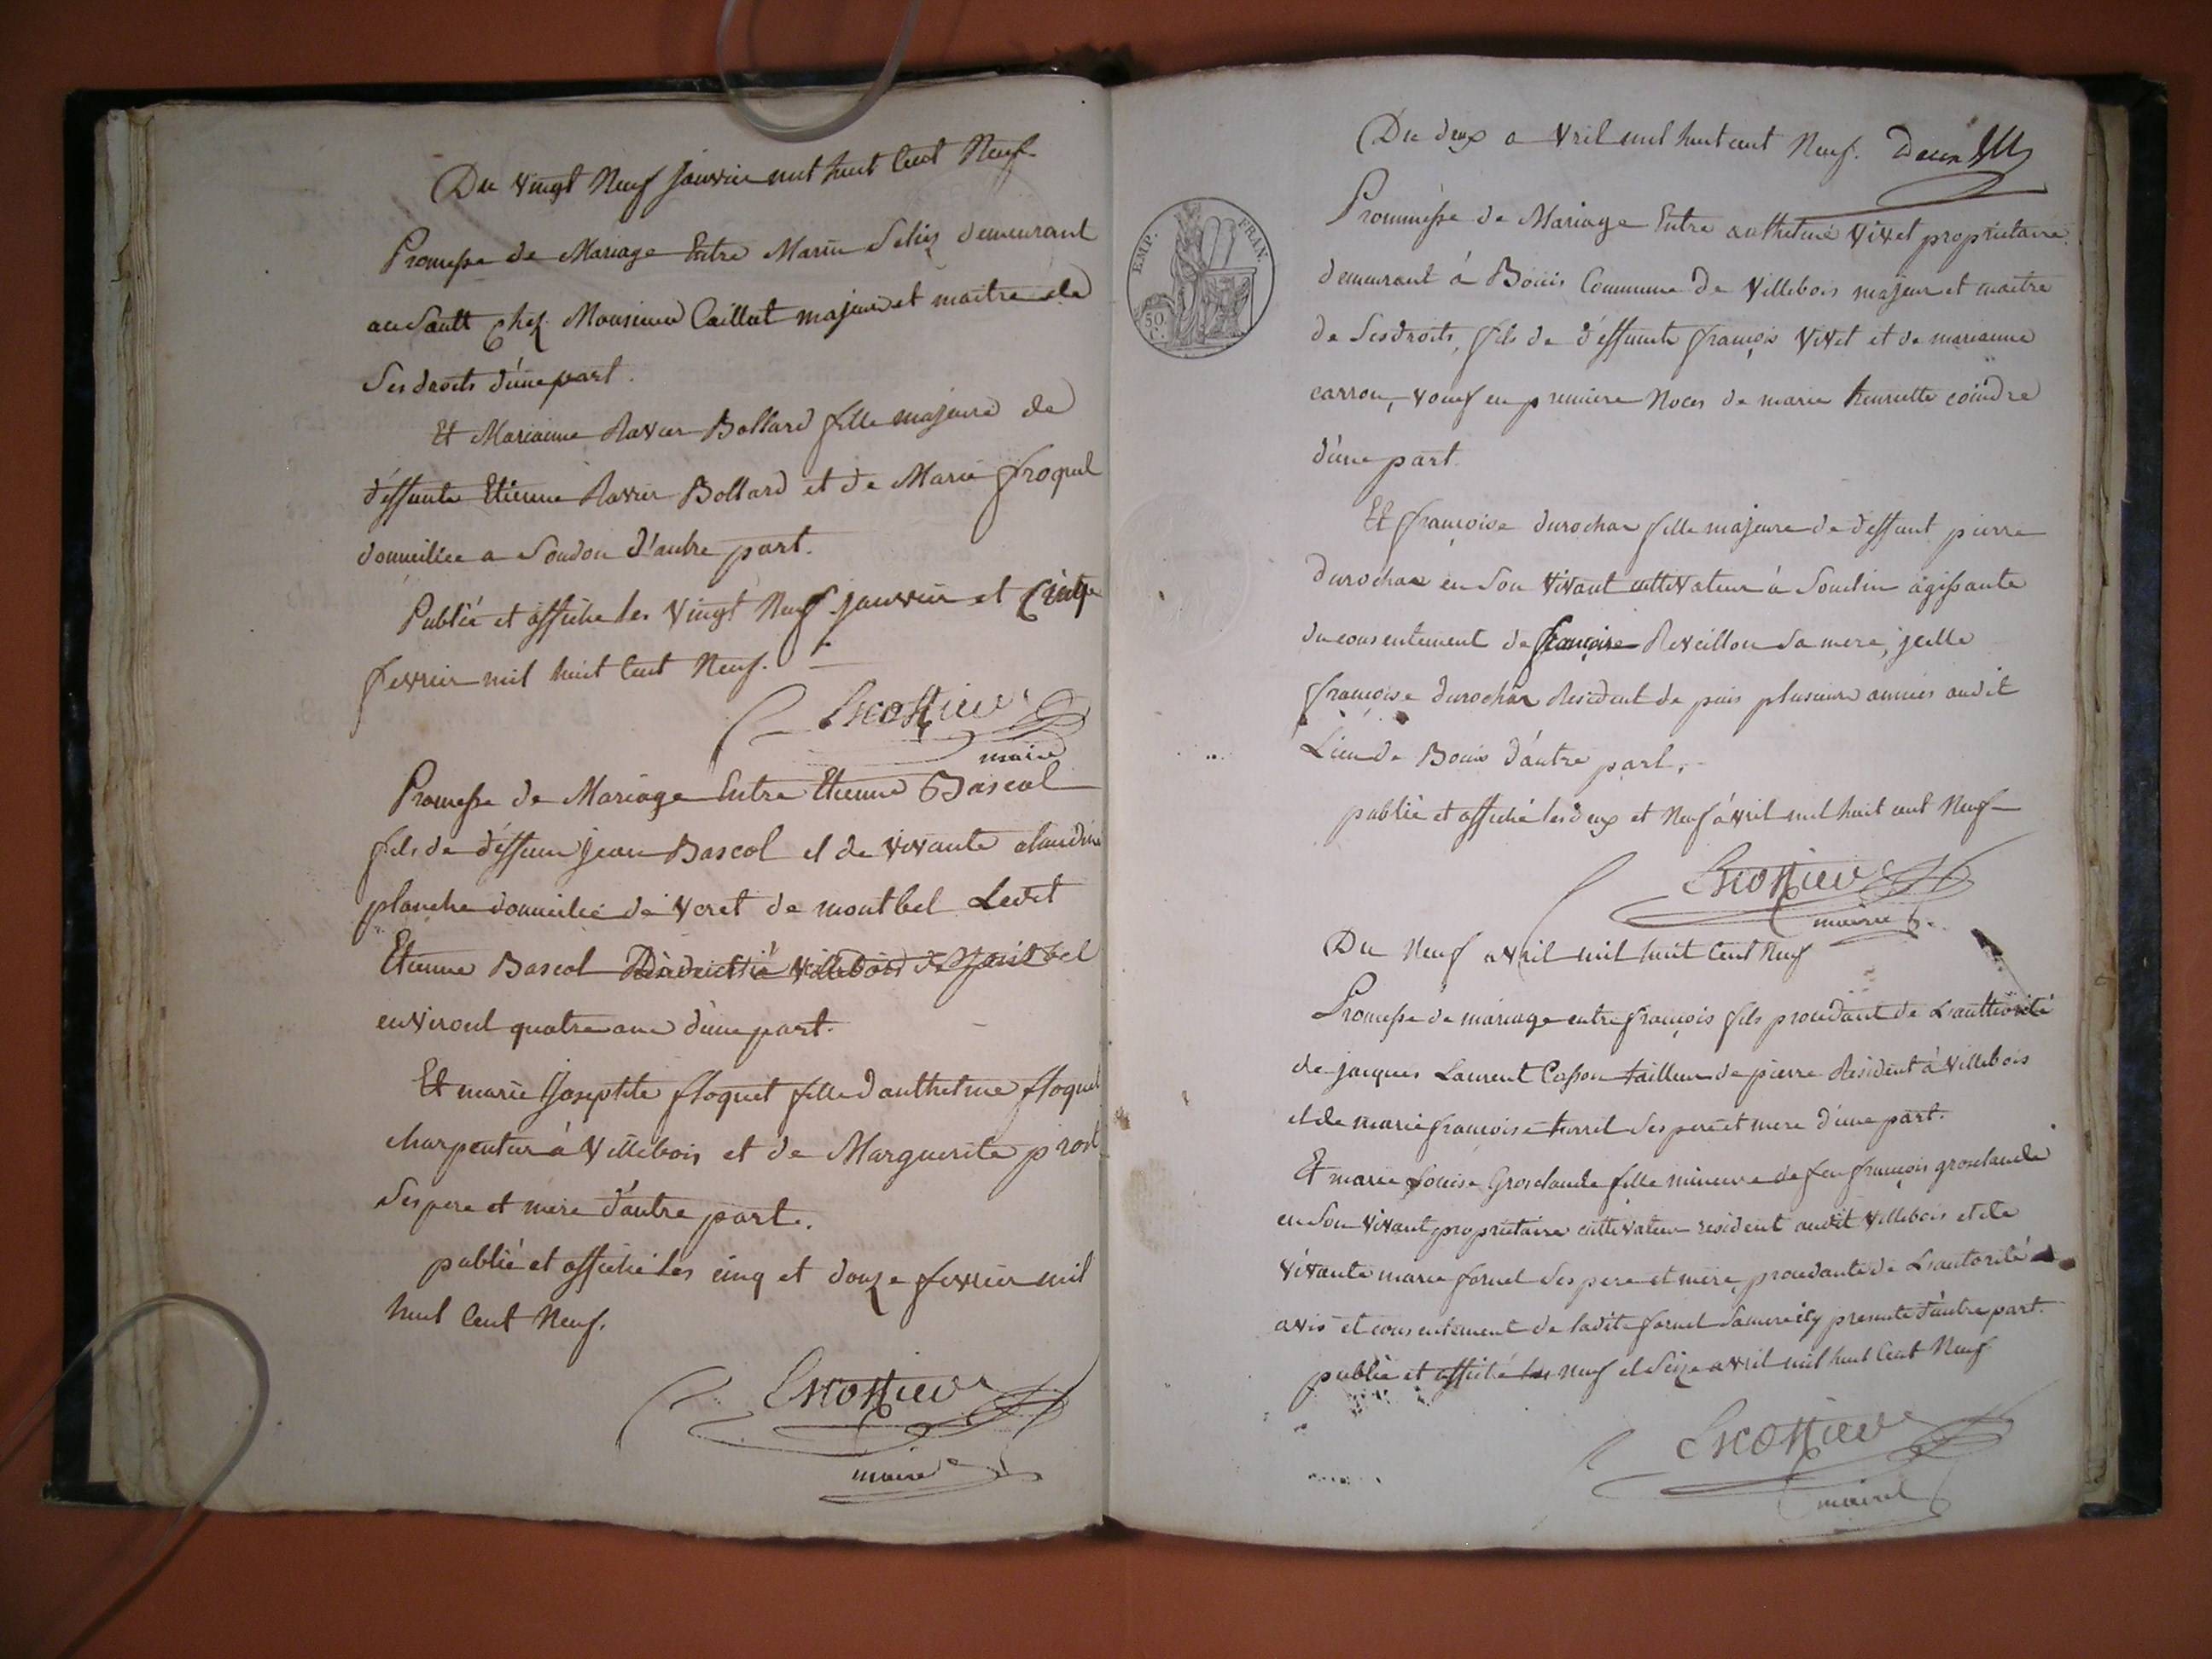 Du vingt Neuf janvier mil huit Cent Neuf
Promesse de Mariage Entre Marin Selies demeurant
au Sault chez Monsieur Caillat majeur et maitre de
Ses droits d'une part.
Et Marianne Ravier Bollard fille majeure de
déffunte Etienne Ravier Bollard et de Marie froquel
domiciliée a Soudon d'autre part.
Publié et affiché les vingt Neuf janvier et Cinq
fevrier mil huit Cent Neuf.
maire
Promesse de Mariage Entre Etienne Bascol
fils de déffunt jean Bascol et de vivante claudine
planche domicilié de veret de montbel Ledit
Etienne Bascol
environt quatre ans d'une part.
Et marie Josephte floquet fille d'anthelme floquet
charpentier à Villebois et de Marguerite prost
Ses pere et mere d'autre part.
publié et affiché les cinq et douze fevrier mil
huit Cent Neuf.
maire
Du deux avril mil huit cent Neuf. deux
EMP. FRAN.
50
C.
Prommesse de Mariage Entre anthelme vivet proprietaire
demeurant à Bouis Commune de Villebois majeur et maitre
de Ses droits, fils de d'effunt françois vivet et de marianne
carron, veuf en premiere Noces de marie henriette coindre
d'une part.
Et françoise durochar fille majeure de deffunt pierre
durochar en Son vivant cultivateur à Soudin agissante
du consentement de françoise Reveillon Sa mere, jcelle
françoise durochar Resident de puis plusieurs années audit
Lieu de Bouis d'autre part.
publié et affiché les deux et Neuf avril mil huit cent Neuf
maire
Du Neuf avril mil huit Cent Neuf
Promesse de mariage entre françois fils procedant de L'autthorité
de jacques Laurent Casson tailleur de pierre Resident à Villebois
et de marie françoise turrel Ses pere et mere d'une part.
Et marie Louise Grosclaude fille mineure de feu françois grosclaude
en Son vivant proprietaire cultivateur resident audit Villebois et de
vivante marie fornel Ses pere et mere, procedante de L'autorité
avis et consentement de ladite fornel Sa mere icy presente d'autre part.
publié et affiché les neuf et Seize avril mil huit Cent Neuf
maire